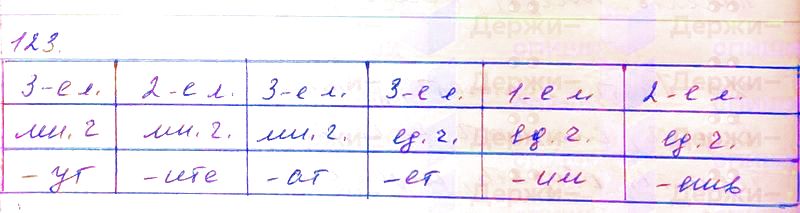 Держи- Держи-
123.
3-е л. 2-е л. 3-е л. 3-е л. 1-е л. 2-е л.
мн. ч мн. ч. мн. ч. ед. ч. ед. ч. ед. ч.
-ут -ите -ат -ет -им -ешь